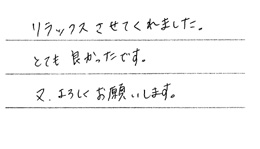 リラックスさせてくれました。
とても良かったです。
又、よろしくお願いします。